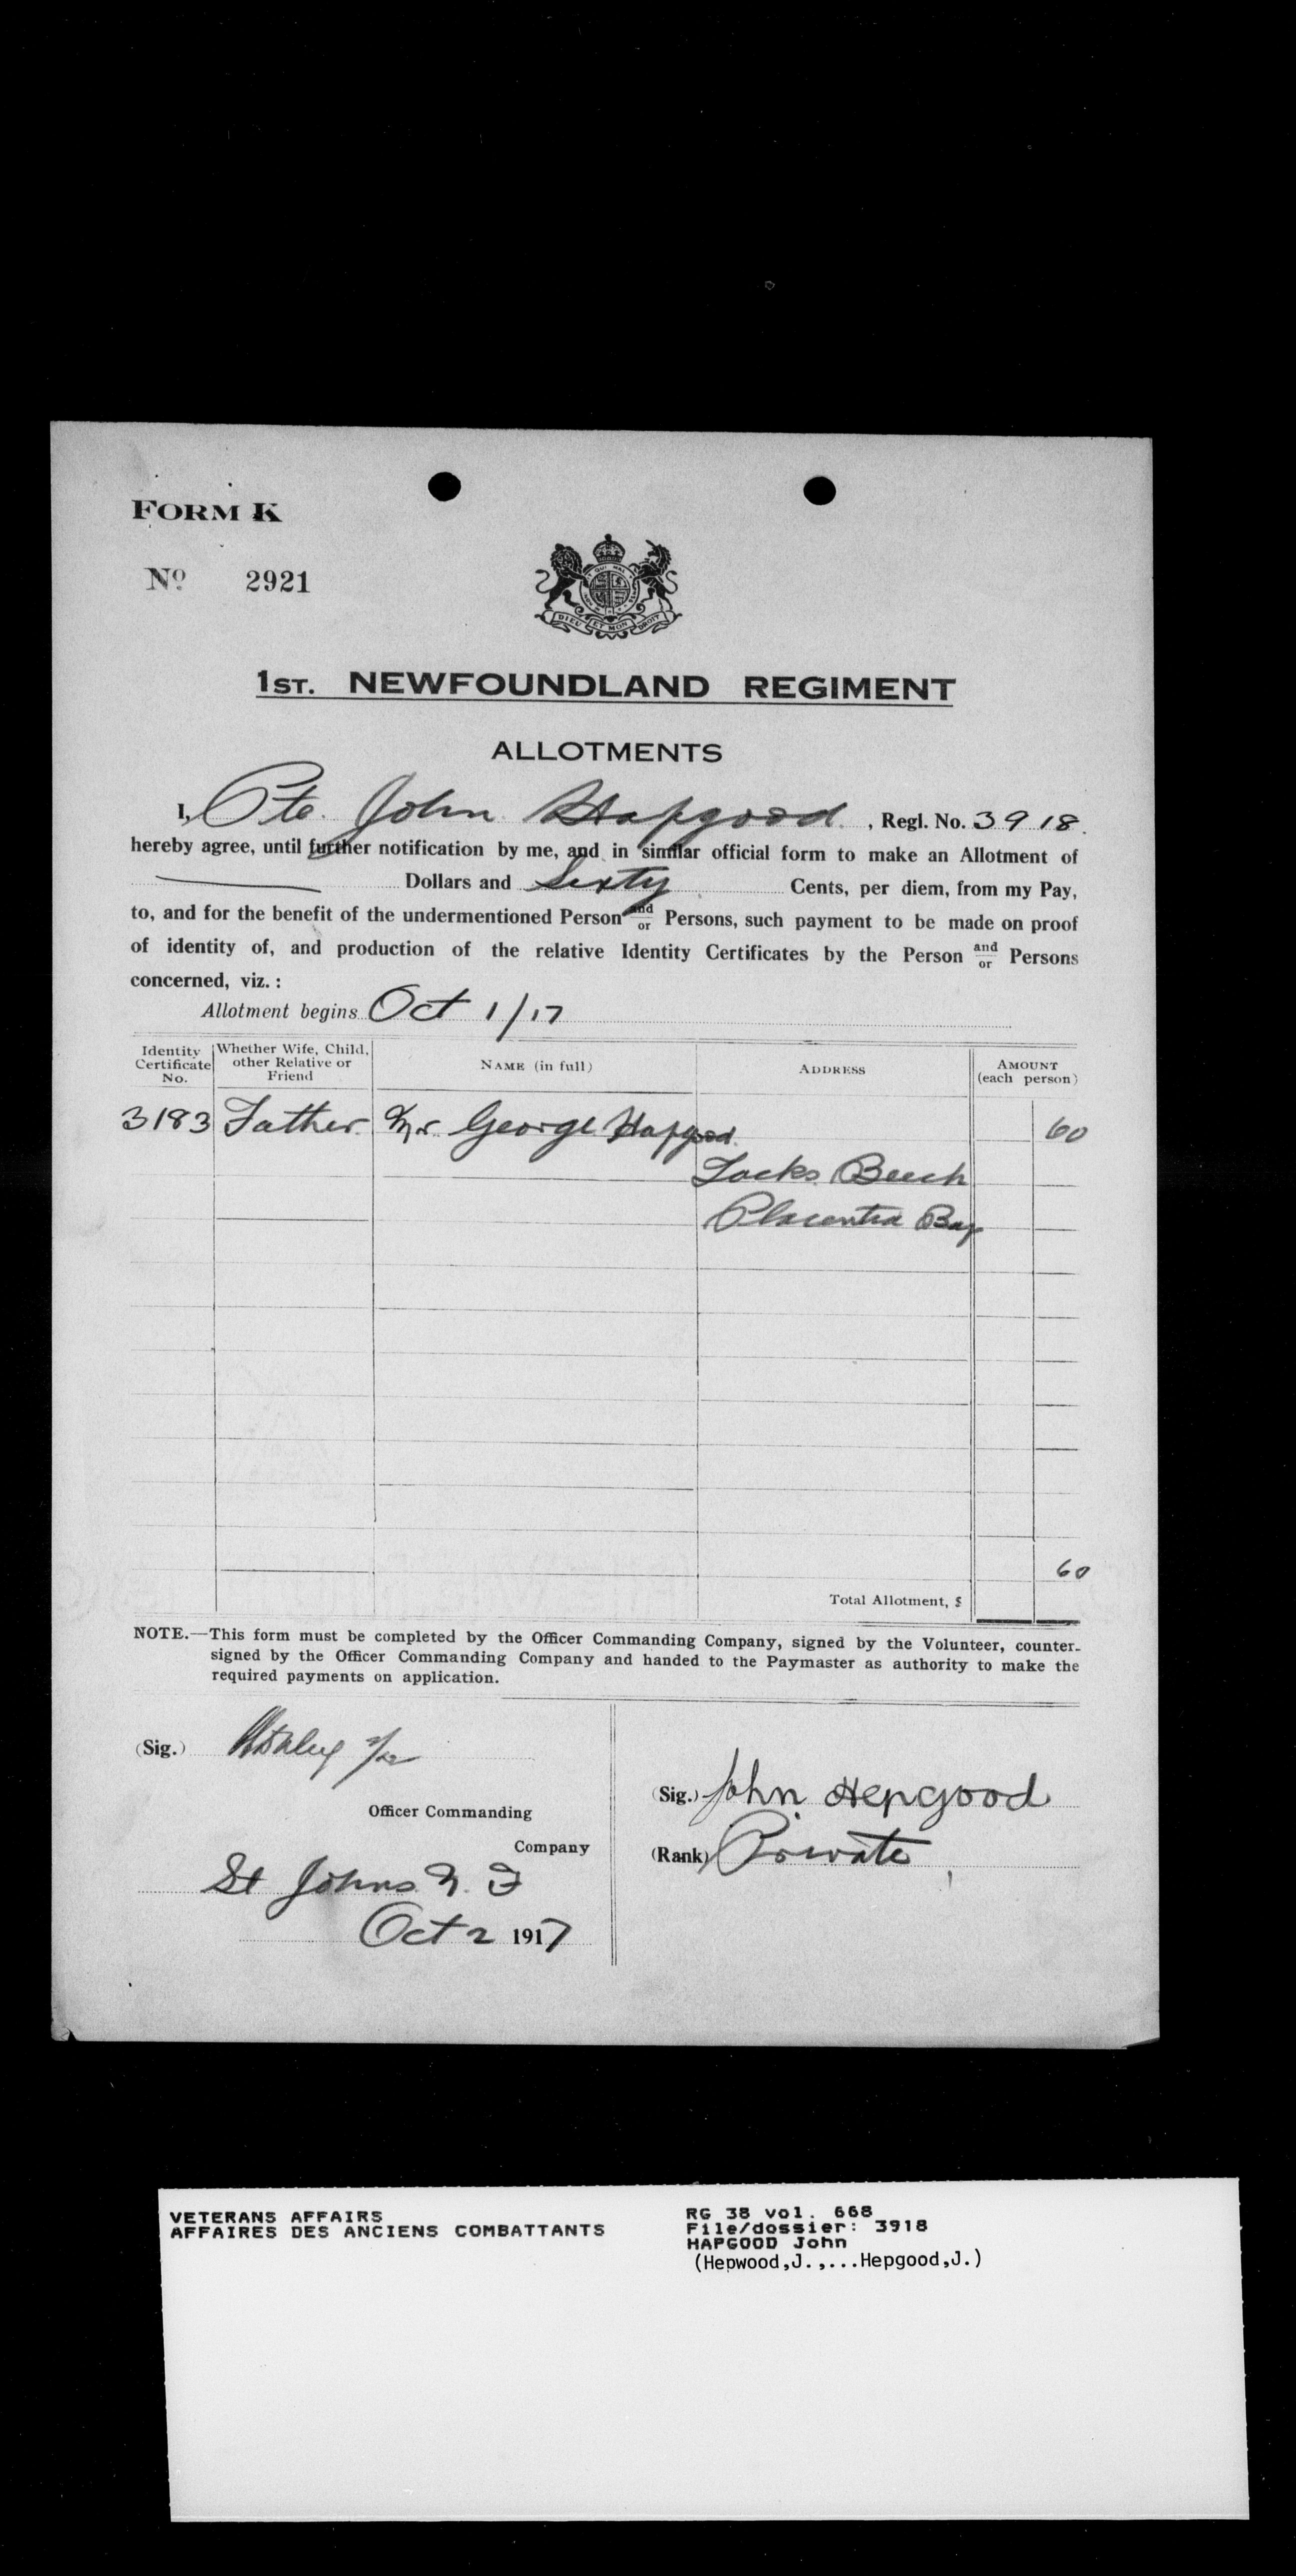 FORM K
Nº 2921
DIEU ET MON DROIT
1ST. NEWFOUNDLAND REGIMENT
ALLOTMENTS
I, Pte. John Hapgood, Regl. No. 3918
hereby agree, until further notification by me, and in similar official form to make an Allotment of
Dollars and Sixty Cents, per diem, from my Pay,
to, and for the benefit of the undermentioned Person and/or Persons, such payment to be made on proof
of identity of, and production of the relative Identity Certificates by the Person and/or Persons
concerned, viz.:
Allotment begins Oct 1/17
Identity Certificate No. Whether Wife, Child, other Relative or Friend NAME (in full) ADDRESS AMOUNT (each person)
3183 Father Mr. George Hapgood 60
Beech
Placentia Bay
60
Total Allotment, $
NOTE.—This form must be completed by the Officer Commanding Company, signed by the Volunteer, counter-
signed by the Officer Commanding Company and handed to the Paymaster as authority to make the
required payments on application.
(Sig.)
Officer Commanding
Company
St Johns N. F
Oct 2 1917
(Sig.) John Hepgood
(Rank) Private
VETERANS AFFAIRS
AFFAIRES DES ANCIENS COMBATTANTS
RG 38 vol. 668
File/dossier: 3918
HAPGOOD John
(Hepwood,J.,...Hepgood,J.)